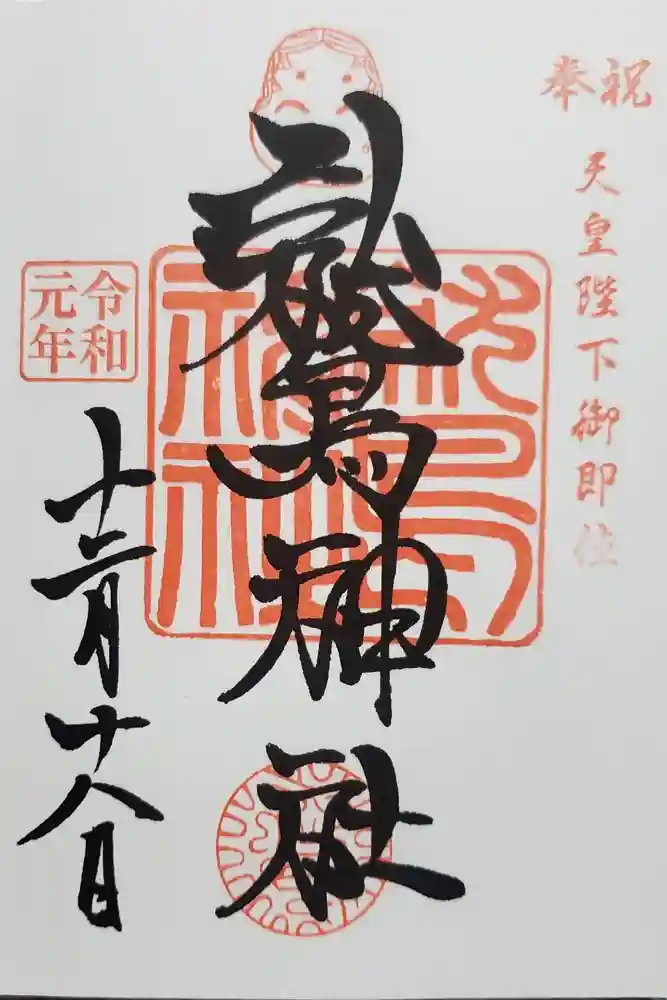 奉祝
天皇陛下御即位
鷲神社
令和
元年
十二月十八日